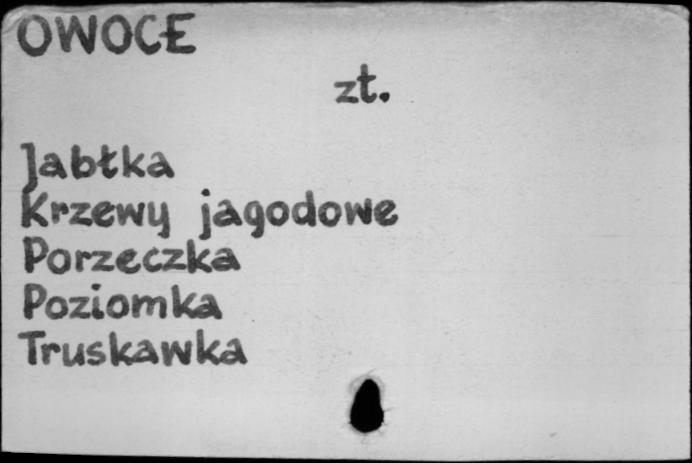 OWOCE
zt.
Jabłka
Krzewy jagodowe
Porzeczka
Poziomka
Truskawka